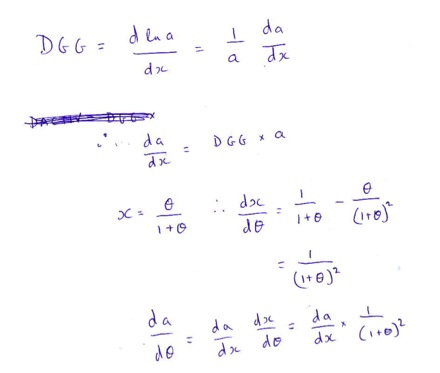 DGG = d ln a / dx = 1/a da/dx
∴ da/dx = DGG × a
x = θ/(1+θ) ∴ dx/dθ = 1/(1+θ) - θ/(1+θ)²
= 1/(1+θ)²
da/dθ = da/dx dx/dθ = da/dx × 1/(1+θ)²